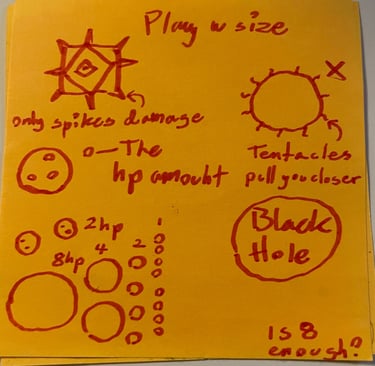 Play w size
only spikes damage
X
o—The
hp amouht
Tentacles
pull you closer
2hp
8hp
4
2
1
Black
Hole
is 8
enough?